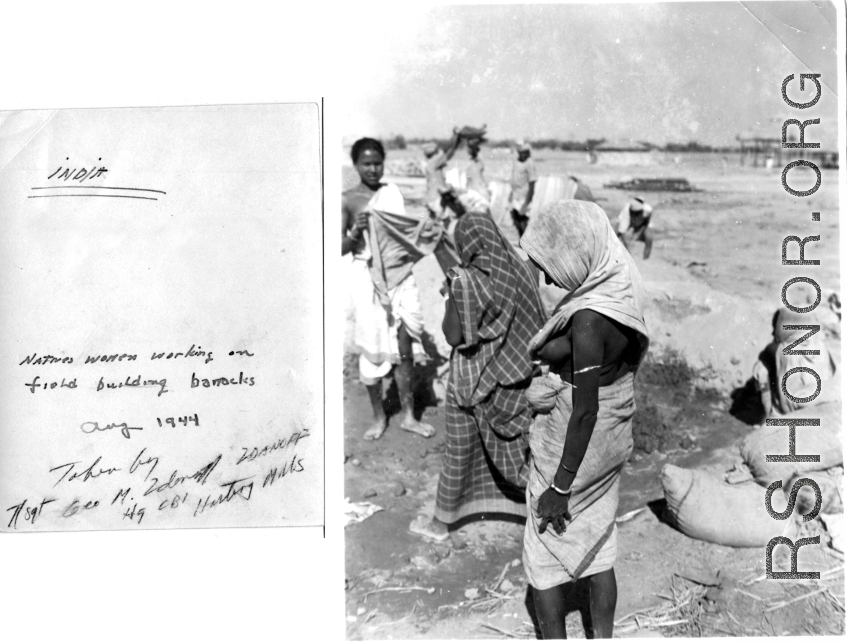 INDIA
Natives women working on
field building barracks
Aug 1944
Taken by ZDANOFF
T/sgt Geo M. Zdanoff
Hq CBI Hastings Mills
RSHONOR.ORG